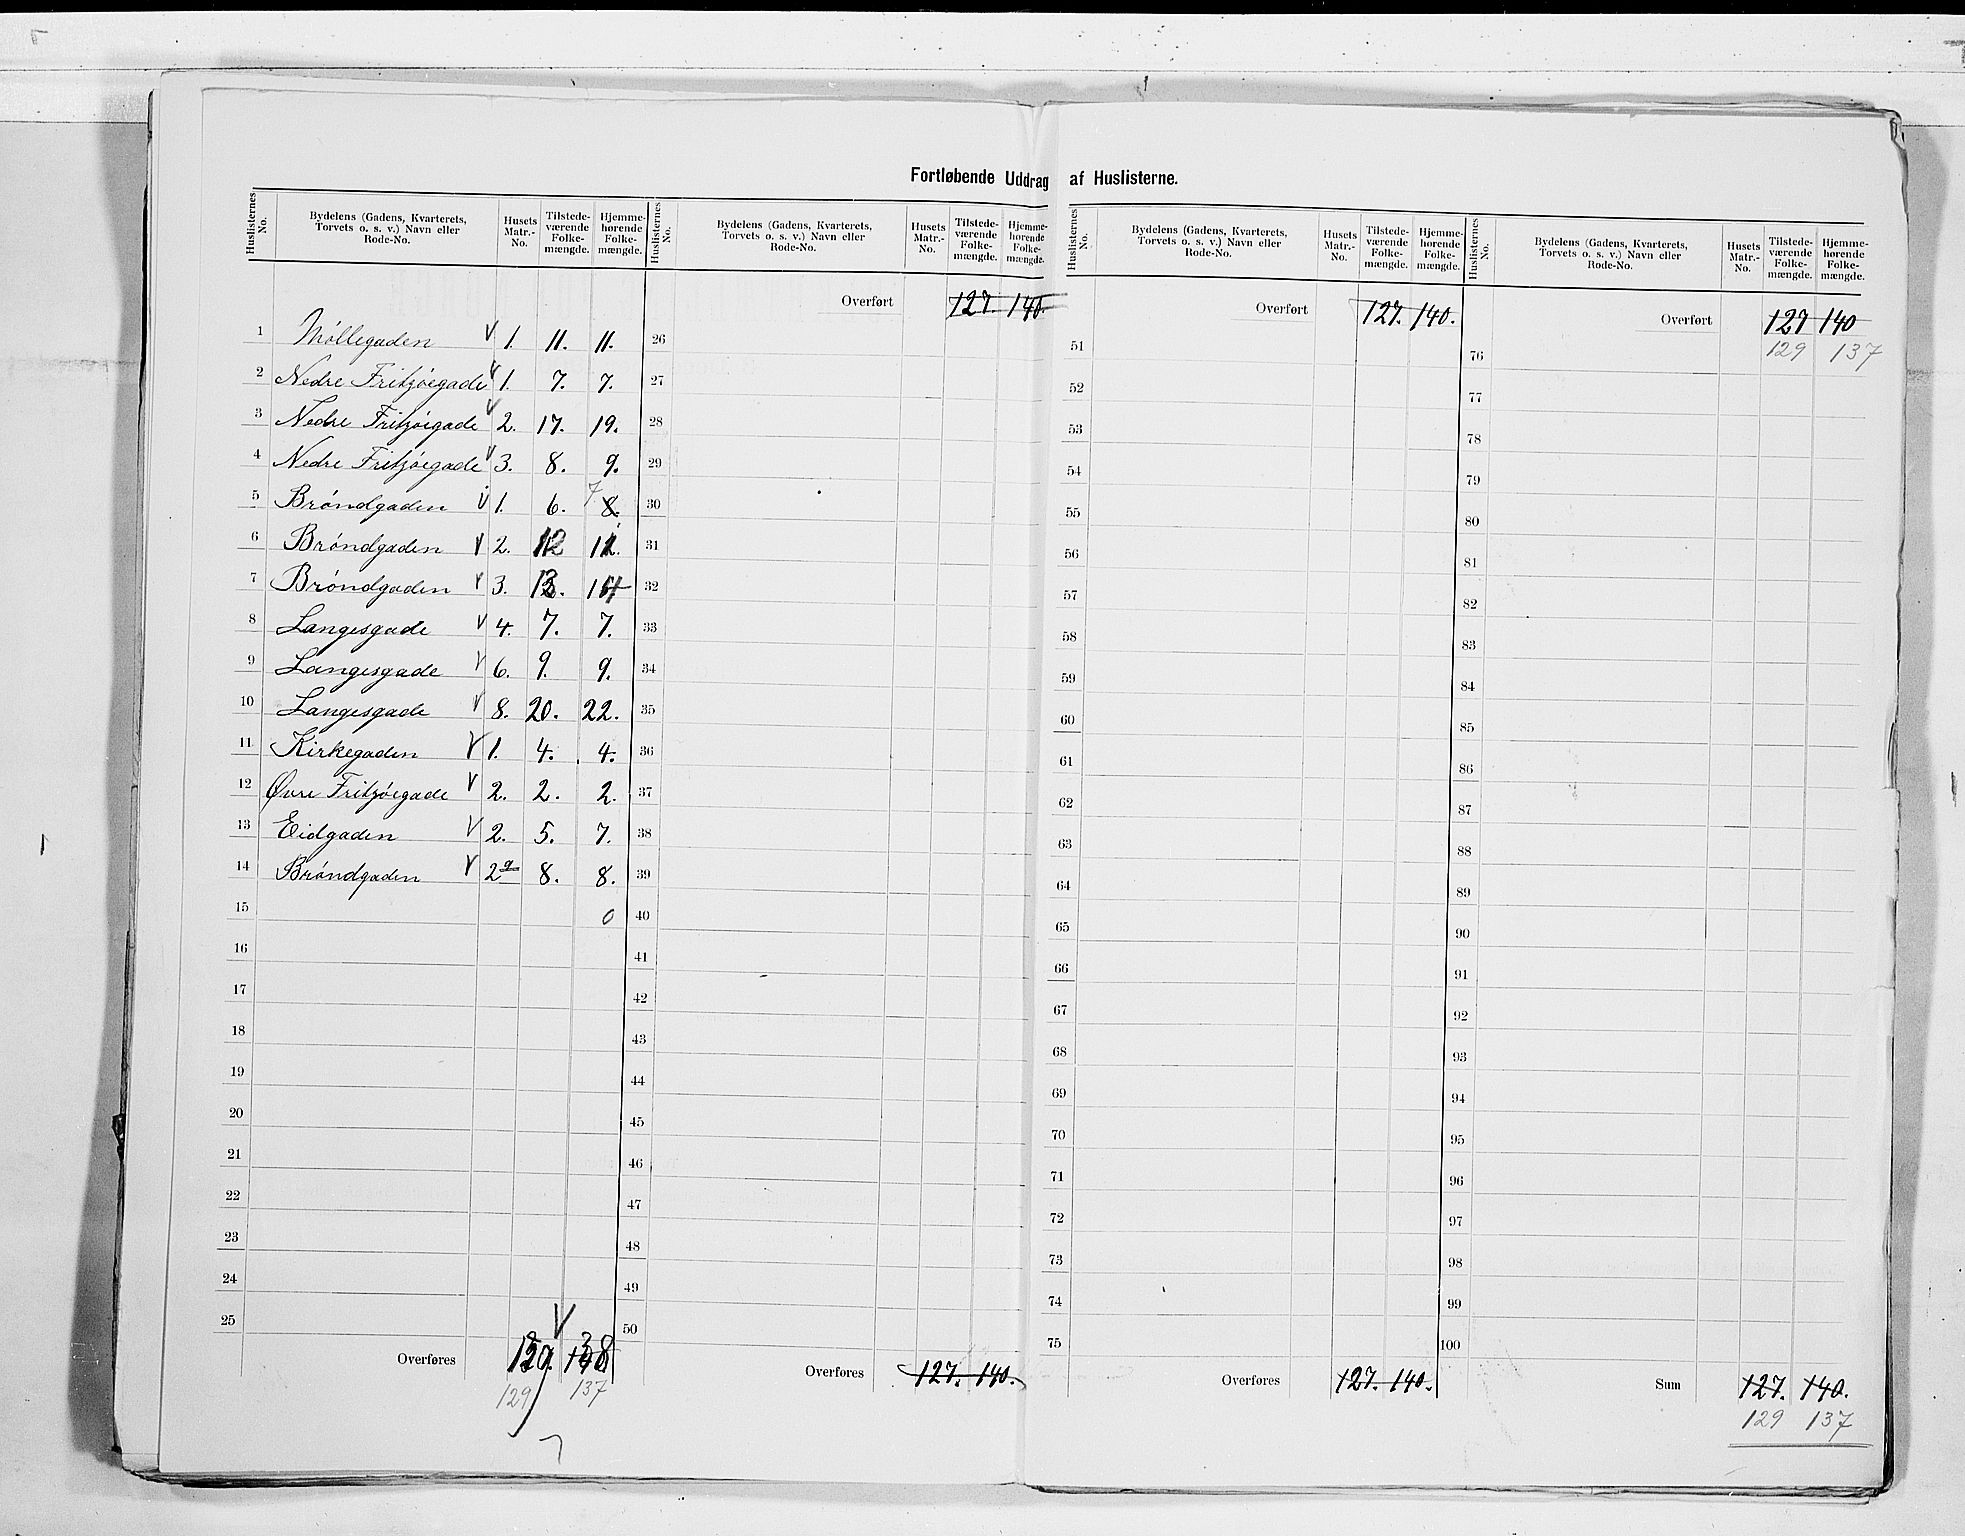 Fortløbende Uddrag af Huslisterne.
Huslisternes No. | Bydelens (Gadens, Kvarterets, Torvets o. s. v.) Navn eller Rode-No. | Husets Matr.-No. | Tilstedeværende Folkemængde. | Hjemmehørende Folkemængde.
1 Møllegaden V 1. 11. 11.
2 Nedre Fritzöegade V 1. 7. 7.
3 Nedre Fritzöigade V 2. 17. 19.
4 Nedre Fritzöegade V 3. 8. 9.
5 Bröndgaden V 1. 6. 7 8.
6 Bröndgaden V 2. 12 11.
7 Bröndgaden V 3. 13. 14
8 Langesgade V 4. 7. 7.
9 Langesgade V 6. 9. 9.
10 Langesgade V 8. 20. 22.
11 Kirkegaden V 1. 4. 4.
12 Øvre Fritzöegade V 2. 2. 2.
13 Eidgaden V 2. 5. 7.
14 Bröndgaden V 2a 8. 8.
15 0
16
17
18
19
20
21
22
23
24
25
V
Overføres 138
129 137
Huslisternes No. | Bydelens (Gadens, Kvarterets, Torvets o. s. v.) Navn eller Rode-No. | Husets Matr.-No. | Tilstedeværende Folkemængde. | Hjemmehørende Folkemængde.
Overført 127. 140.
26
27
28
29
30
31
32
33
34
35
36
37
38
39
40
41
42
43
44
45
46
47
48
49
50
Overføres 127. 140.
Huslisternes No. | Bydelens (Gadens, Kvarterets, Torvets o. s. v.) Navn eller Rode-No. | Husets Matr.-No. | Tilstedeværende Folkemængde. | Hjemmehørende Folkemængde.
Overført 127. 140.
51
52
53
54
55
56
57
58
59
60
61
62
63
64
65
66
67
68
69
70
71
72
73
74
75
Overføres 127. 140.
Huslisternes No. | Bydelens (Gadens, Kvarterets, Torvets o. s. v.) Navn eller Rode-No. | Husets Matr.-No. | Tilstedeværende Folkemængde. | Hjemmehørende Folkemængde.
Overført 127 140
129 137
76
77
78
79
80
81
82
83
84
85
86
87
88
89
90
91
92
93
94
95
96
97
98
99
100
Sum 127. 140.
129 137